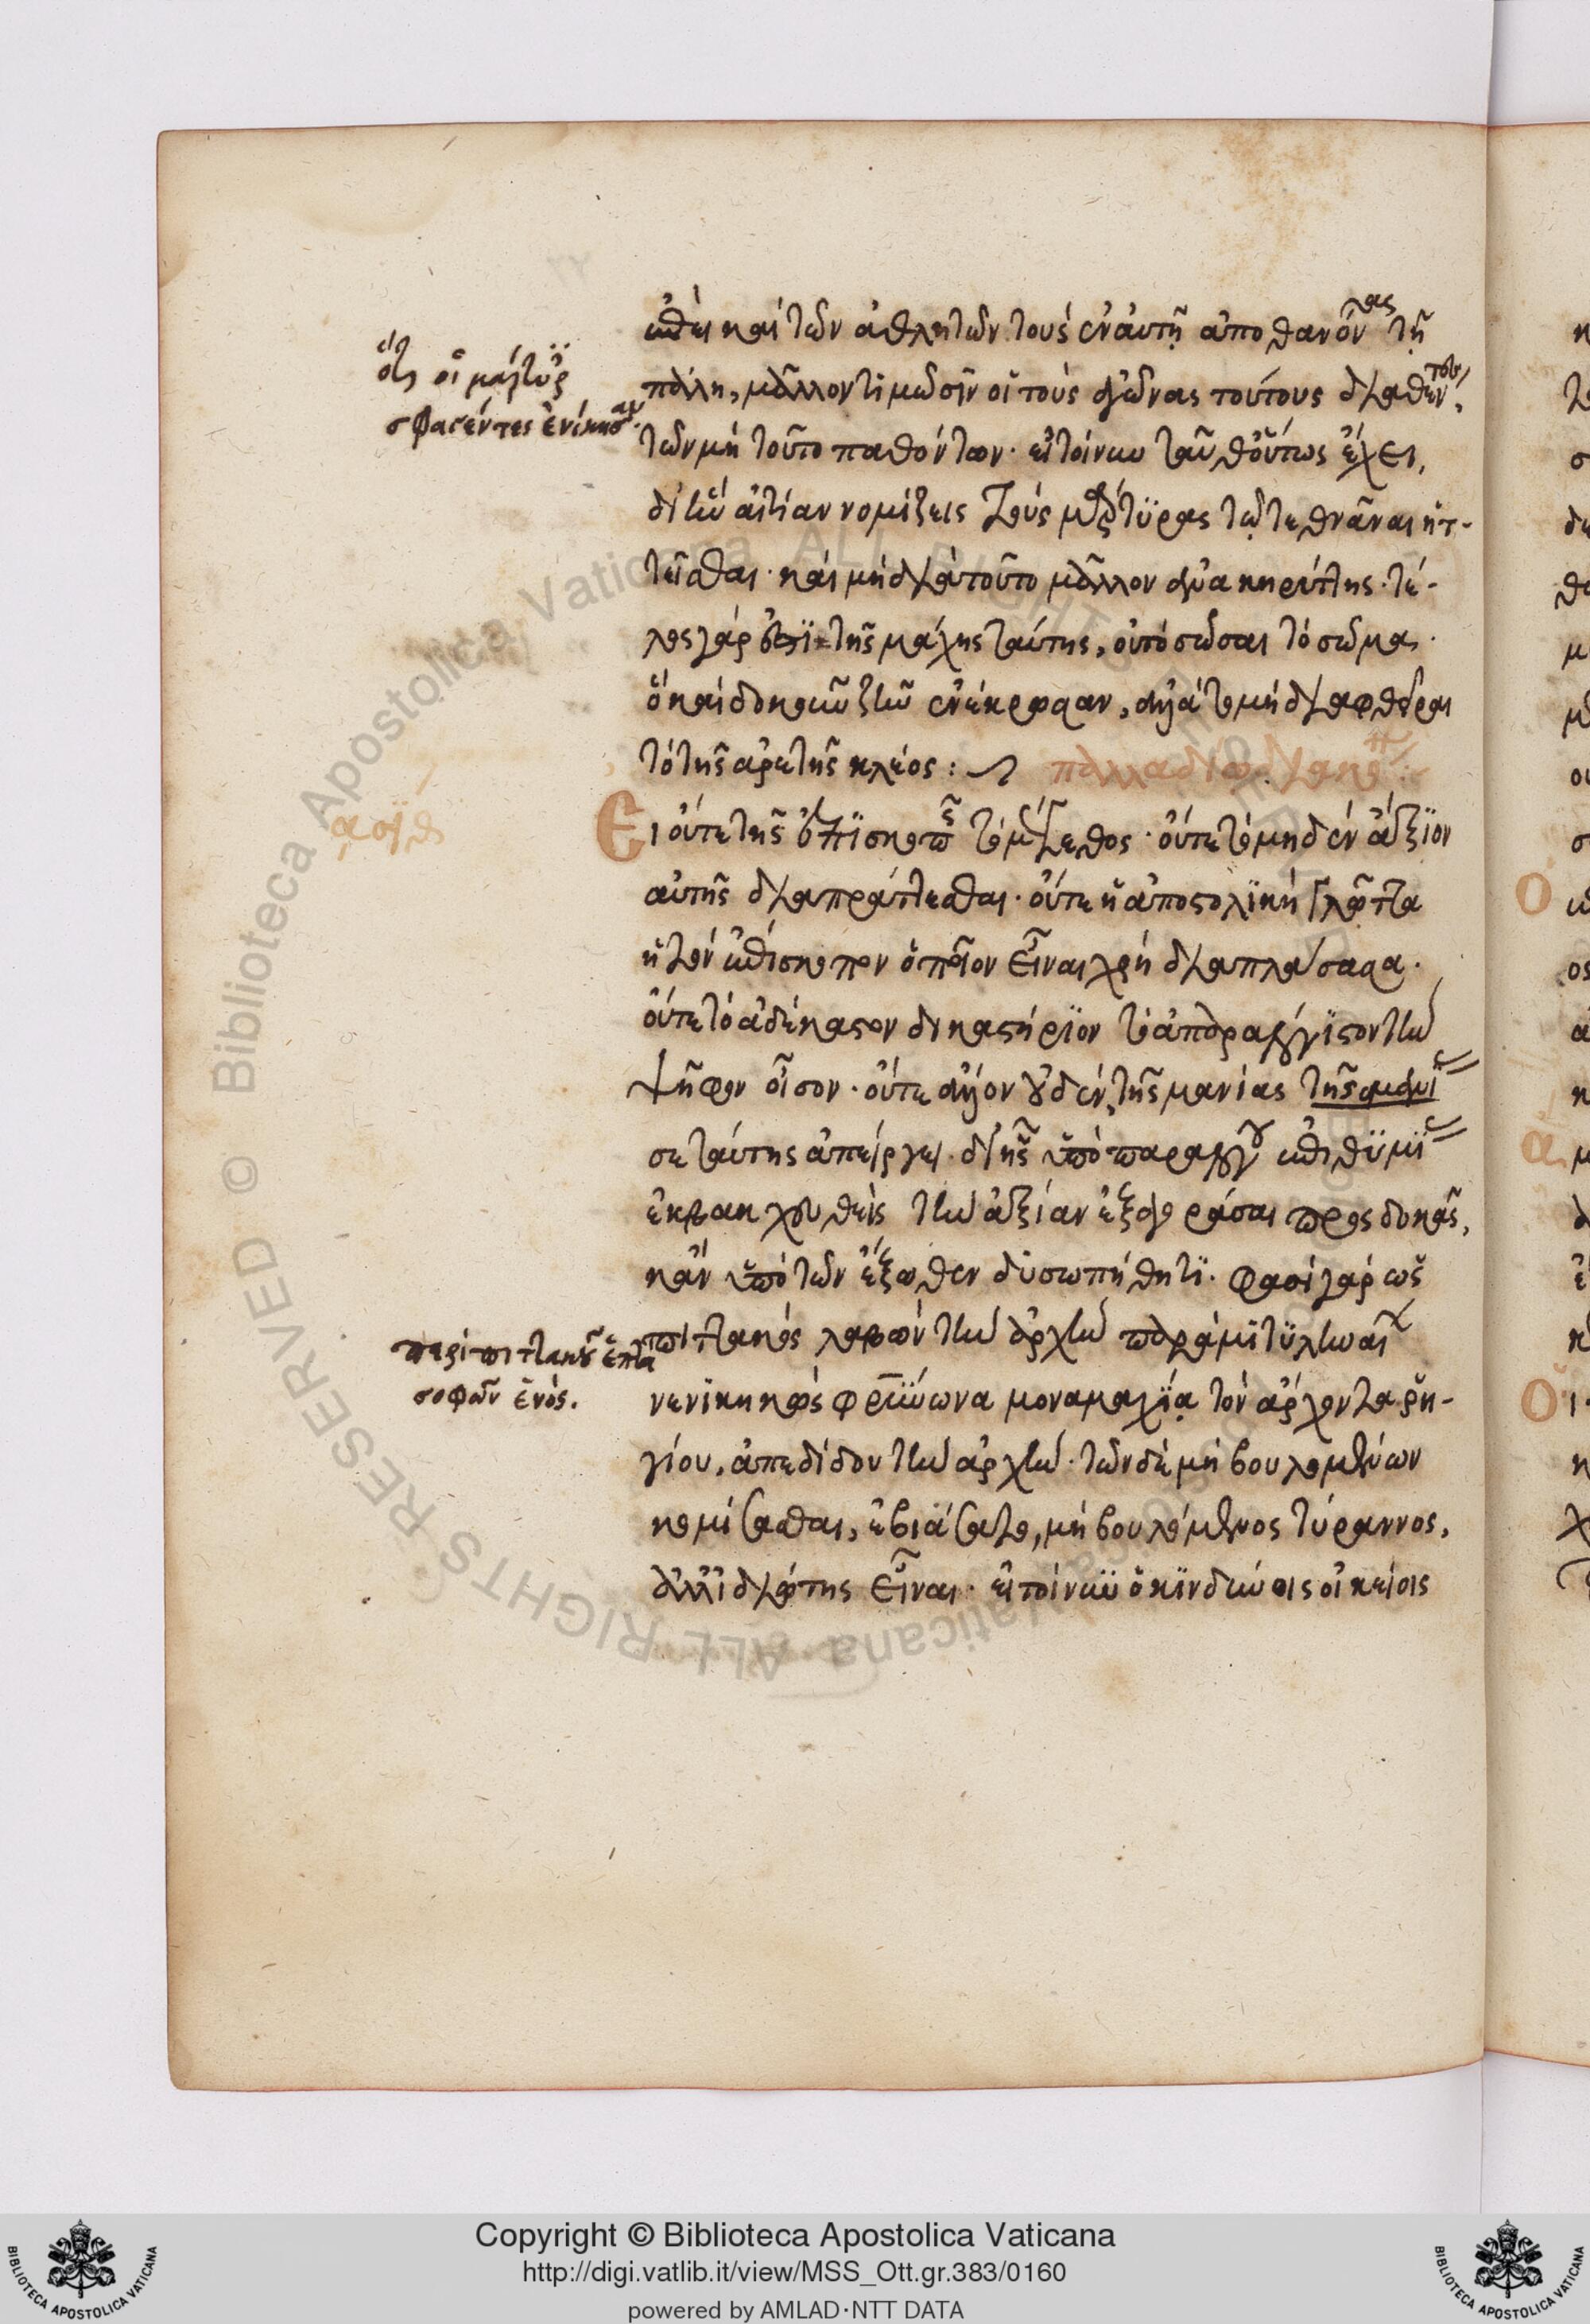 ἐπεὶ καὶ τῶν ἀθλητῶν τοὺς ἐν αὐτῇ ἀποθανόντας τῇ
πάλῃ, μᾶλλον τιμῶσιν οἱ τοὺς ἀγῶνας τούτους διαθέντες,
τῶν μὴ τοῦτο παθόντων. εἰ τοίνυν ταῦθ' οὕτως ἔχει,
δι' ἣν αἰτίαν νομίζεις τοὺς μάρτυρας τῷ τεθνᾶναι ἡτ-
τῆσθαι· καὶ μὴ διὰ τοῦτο μᾶλλον ἀνακηρύττεις. τέ-
λος γὰρ ἐστὶ τῆς μάχης ταύτης, οὐ τὸ σῶσαι τὸ σῶμα.
ὃ καὶ δοκοῦν ζῆν ἐνέκρωσαν, ἀλλὰ τὸ μὴ διαφθεῖραι
τὸ τῆς ἀρετῆς κλέος:
παλλαδίω διακό
Εἰ οὔτε τῆς ἐπισκοπῆς τὸ μέγεθος. οὔτε τὸ μηδὲν ἄξιον
αὐτῆς διαπράττεσθαι. οὔτε ἡ ἀποστολικὴ γλῶττα
ἡ τὸν ἐπίσκοπον ὁποῖον εἶναι χρὴ διαπλάσασα.
οὔτε τὸ ἀδέκαστον δικαστήριον τὸ ἀπαράγγιστον τὴν
ψῆφον οἶσον. οὔτε ἄλλον οὐδὲν τῆς μανίας
σε ταύτης ἀπείργει. δι' ἧς ὑπὸ
ἐκβακχευθεὶς τὴν ἀξίαν ἐξαγοράσαι προσδοκᾷς,
κἂν ὑπὸ τῶν ἔξωθεν δυσωπήθητι. φασὶ γὰρ ὡς
πιττακὸς λαβὼν τὴν ἀρχὴν παρὰ μιτυληναίων
νενικηκὼς φρύνωνα μονομαχίᾳ τὸν ἄρχοντα ῥη-
γίου, ἀπεδίδου τὴν ἀρχήν. τῶν δὲ μὴ βουλομένων
κομίσασθαι, ἐβιάσατο, μὴ βουλόμενος τύραννος,
ἀλλ' ἰδιώτης εἶναι. εἰ τοίνυν ὁ κινδύνοις οἰκείοις
ὅτι οἱ μάρτυρες
σφαγέντες ἐνίκησαν.
περὶ πιττακοῦ ἑπτὰ
σοφῶν ἑνός.
Copyright © Biblioteca Apostolica Vaticana
http://digi.vatlib.it/view/MSS_Ott.gr.383/0160
powered by AMLAD·NTT DATA
BIBLIOTECA APOSTOLICA VATICANA
BIBLIOTECA APOSTOLICA VATICANA